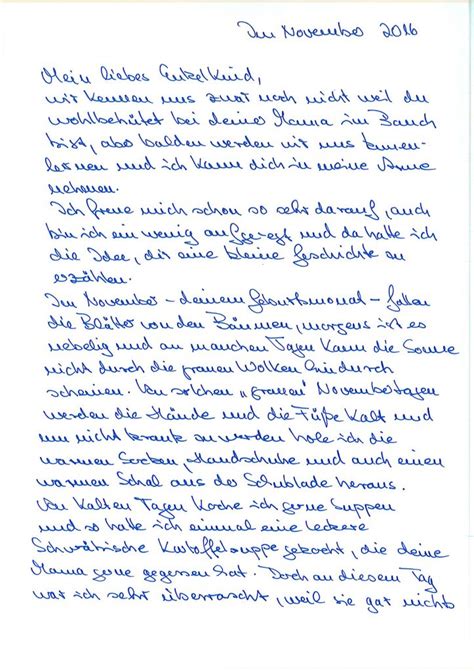 Im November 2016
Mein liebes Enkelkind,
wir kennen uns zwar noch nicht weil du
wohlbehütet bei deiner Mama im Bauch
bist, aber balden werden wir uns kennen-
lernen und ich kann dich in meine Arme
nehmen.
Ich freue mich schon so sehr darauf, auch
bin ich ein wenig aufgeregt und da hatte ich
die Idee, dir eine kleine Geschichte zu
erzählen.
Im November - deinem Geburtsmonat - fallen
die Blätter von den Bäumen, morgens ist es
nebelig und an manchen Tagen kann die Sonne
nicht durch die grauen Wolken hindurch
scheinen. An solchen "grauen" Novembertagen
werden die Hände und die Füße kalt und
um nicht krank zu werden hole ich die
warmen Socken, Handschuhe und auch einen
warmen Schal aus der Schublade heraus.
An kalten Tagen koche ich gerne Suppen
und so hatte ich einmal eine leckere
Schwäbische Kartoffelsuppe gekocht, die deine
Mama gerne gegessen hat. Doch an diesem Tag
war ich sehr überrascht, weil sie gar nichts